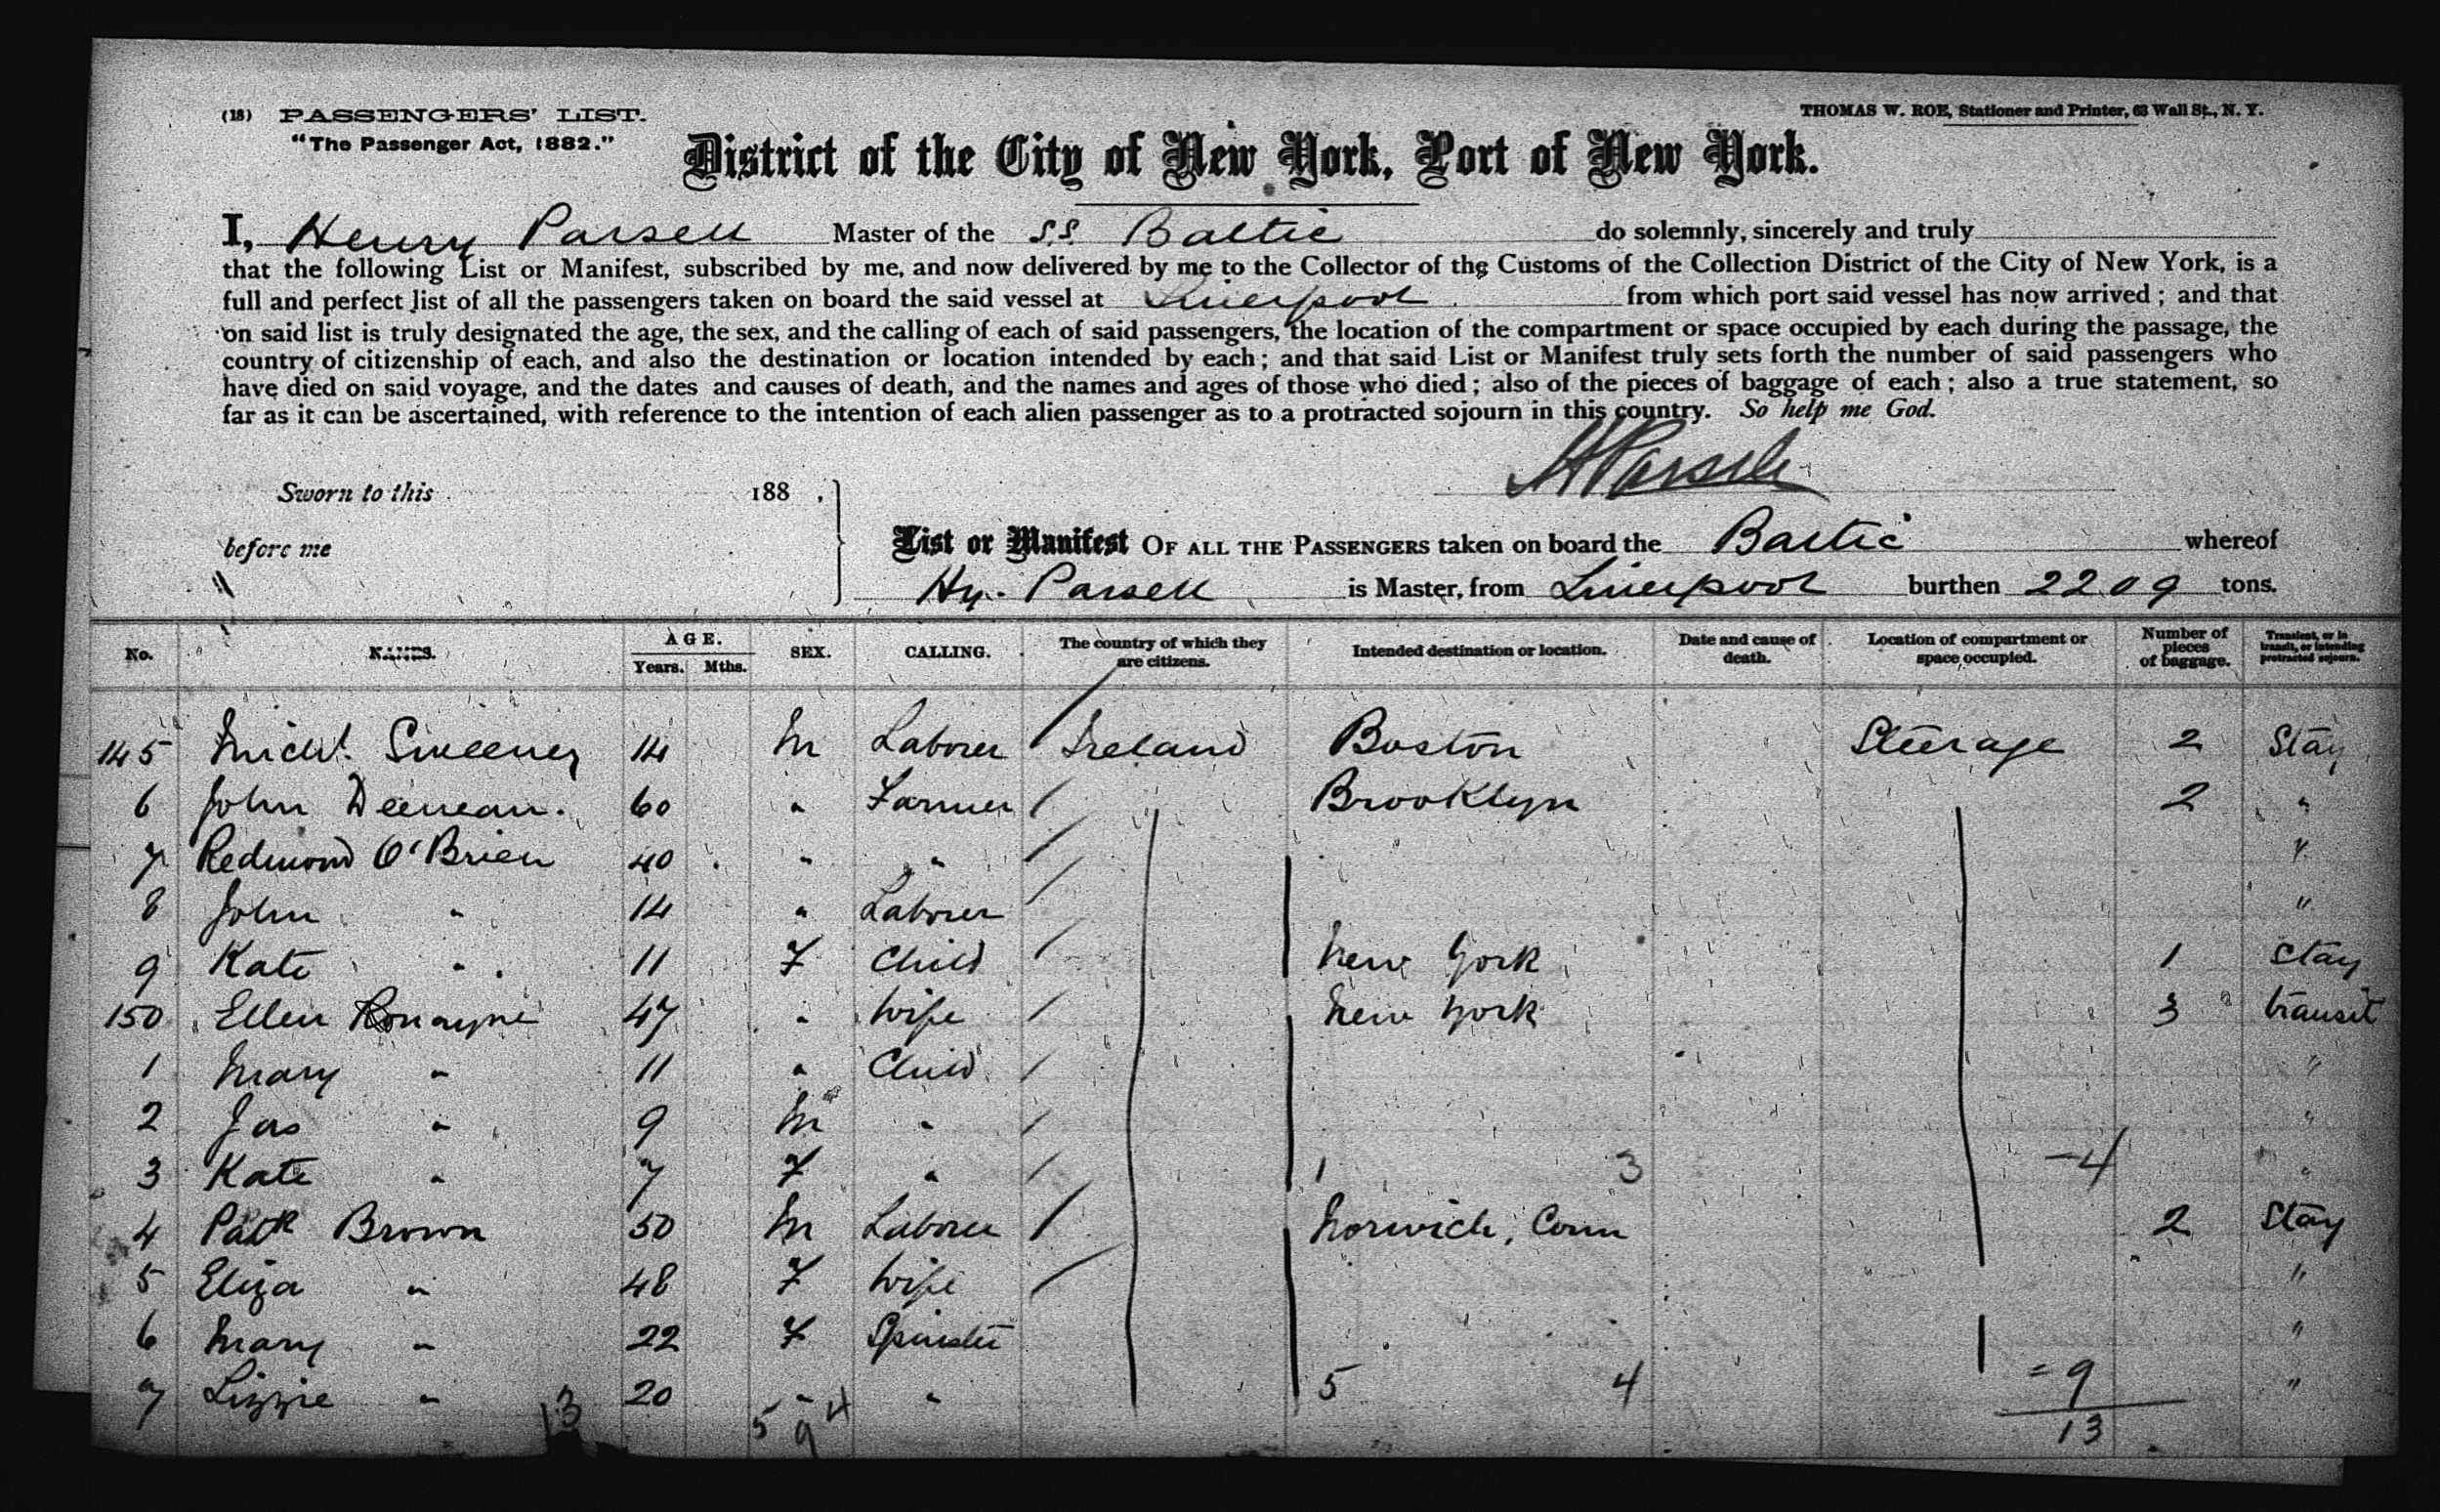 (18) PASSENGERS' LIST.
THOMAS W. ROE, Stationer and Printer, 63 Wall St., N. Y.
"The Passenger Act, 1882."
District of the City of New York, Port of New York.
I, Henry Parsell Master of the S.S. Baltic do solemnly, sincerely and truly
that the following List or Manifest, subscribed by me, and now delivered by me to the Collector of the Customs of the Collection District of the City of New York, is a
full and perfect list of all the passengers taken on board the said vessel at Liverpool from which port said vessel has now arrived ; and that
on said list is truly designated the age, the sex, and the calling of each of said passengers, the location of the compartment or space occupied by each during the passage, the
country of citizenship of each, and also the destination or location intended by each ; and that said List or Manifest truly sets forth the number of said passengers who
have died on said voyage, and the dates and causes of death, and the names and ages of those who died ; also of the pieces of baggage of each ; also a true statement, so
far as it can be ascertained, with reference to the intention of each alien passenger as to a protracted sojourn in this country. So help me God.
H Parsell
Sworn to this 188 .
before me
List or Manifest OF ALL THE PASSENGERS taken on board the Baltic whereof
Hy. Parsell is Master, from Liverpool burthen 2209 tons.
No. NAMES. AGE. Years. Mths. SEX. CALLING. The country of which they are citizens. Intended destination or location. Date and cause of death. Location of compartment or space occupied. Number of pieces of baggage. Transient, or in transit, or intending protracted sojourn.
145 Michl. Sweeney 14 M Laborer Ireland Boston Steerage 2 Stay
6 John Deenean. 60 " Farmer Brooklyn 2 "
7 Redmond O'Brien 40 " " "
8 John " 14 " Laborer "
9 Kate " 11 F Child New York 1 Stay
150 Ellen Ronayne 47 " Wife New York 3 transit
1 Mary " 11 " Child "
2 Jas " 9 M " "
3 Kate " 7 F " 1 3 -4 "
4 Patk Brown 50 M Laborer Norwich, Conn 2 Stay
5 Eliza " 48 F Wife "
6 Mary " 22 F Spinster "
7 Lizzie " 20 " " 5 4 = 9 "
13 5 9 4 13